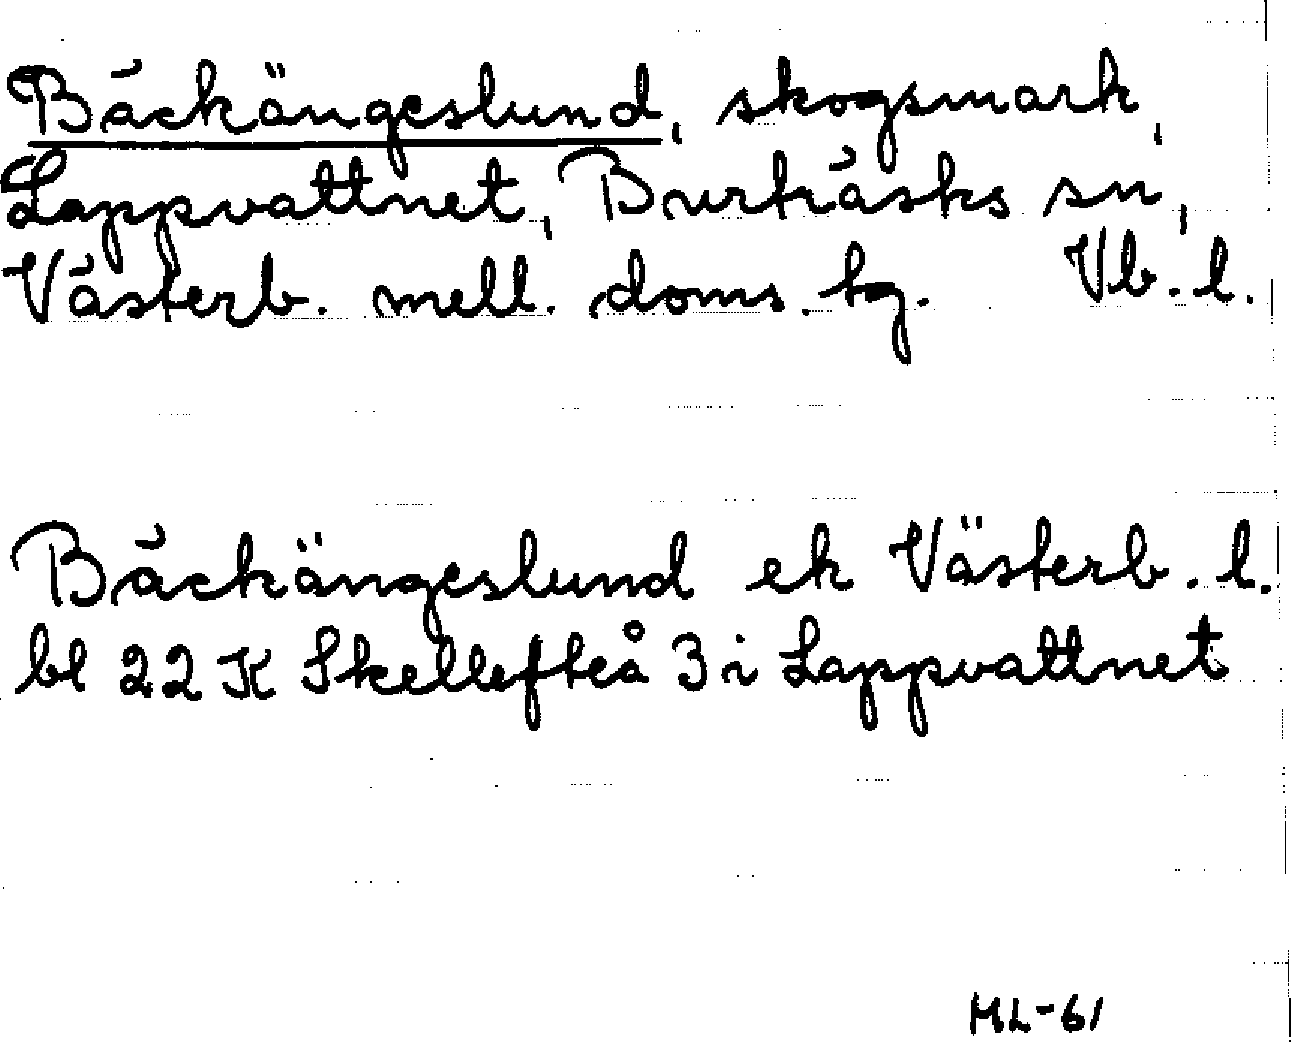 Bäckängeslund, skogsmark,
Lappvattnet, Burträsks sn,
Västerb. mell. doms. tg. Vb. l.
Bäckängeslund ek Västerb. l.
bl 22 K Skellefteå 3 i Lappvattnet
ML-61